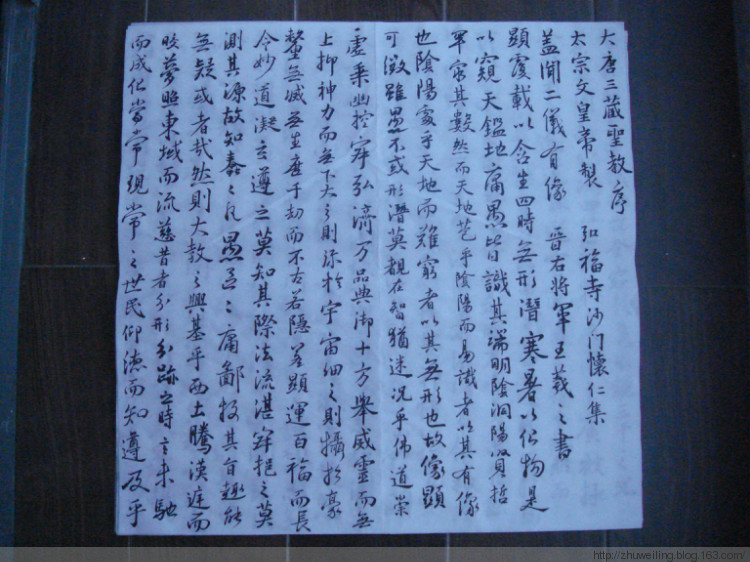 大唐三藏聖教序
太宗文皇帝製 弘福寺沙门懷仁集
盖聞二儀有像 晉右將軍王羲之書
顯覆載以含生四時無形潛寒暑以化物是
以窺天鑑地庸愚皆識其端明陰洞陽賢哲
罕窮其數然而天地苞乎陰陽而易識者以其有像
也陰陽處乎天地而難窮者以其無形也故像顯
可徵雖愚不或形潛莫覩在智猶迷況乎佛道崇
虛乘幽控寂弘濟万品典御十方舉威靈而無
上抑神力而無下大之則弥於宇宙細之則攝於豪
釐無滅無生歷千劫而不古若隱若顯運百福而長
今妙道凝玄遵之莫知其際法流湛寂挹之莫
測其源故知蠢〻凡愚區〻庸鄙投其旨趣能
無疑或者哉然則大教之興基乎西土騰漢庭而
皎夢照東域而流慈昔者分形分跡之時言未馳
而成化當常現常之世民仰德而知遵及乎
http://zhuweiling.blog.163.com/